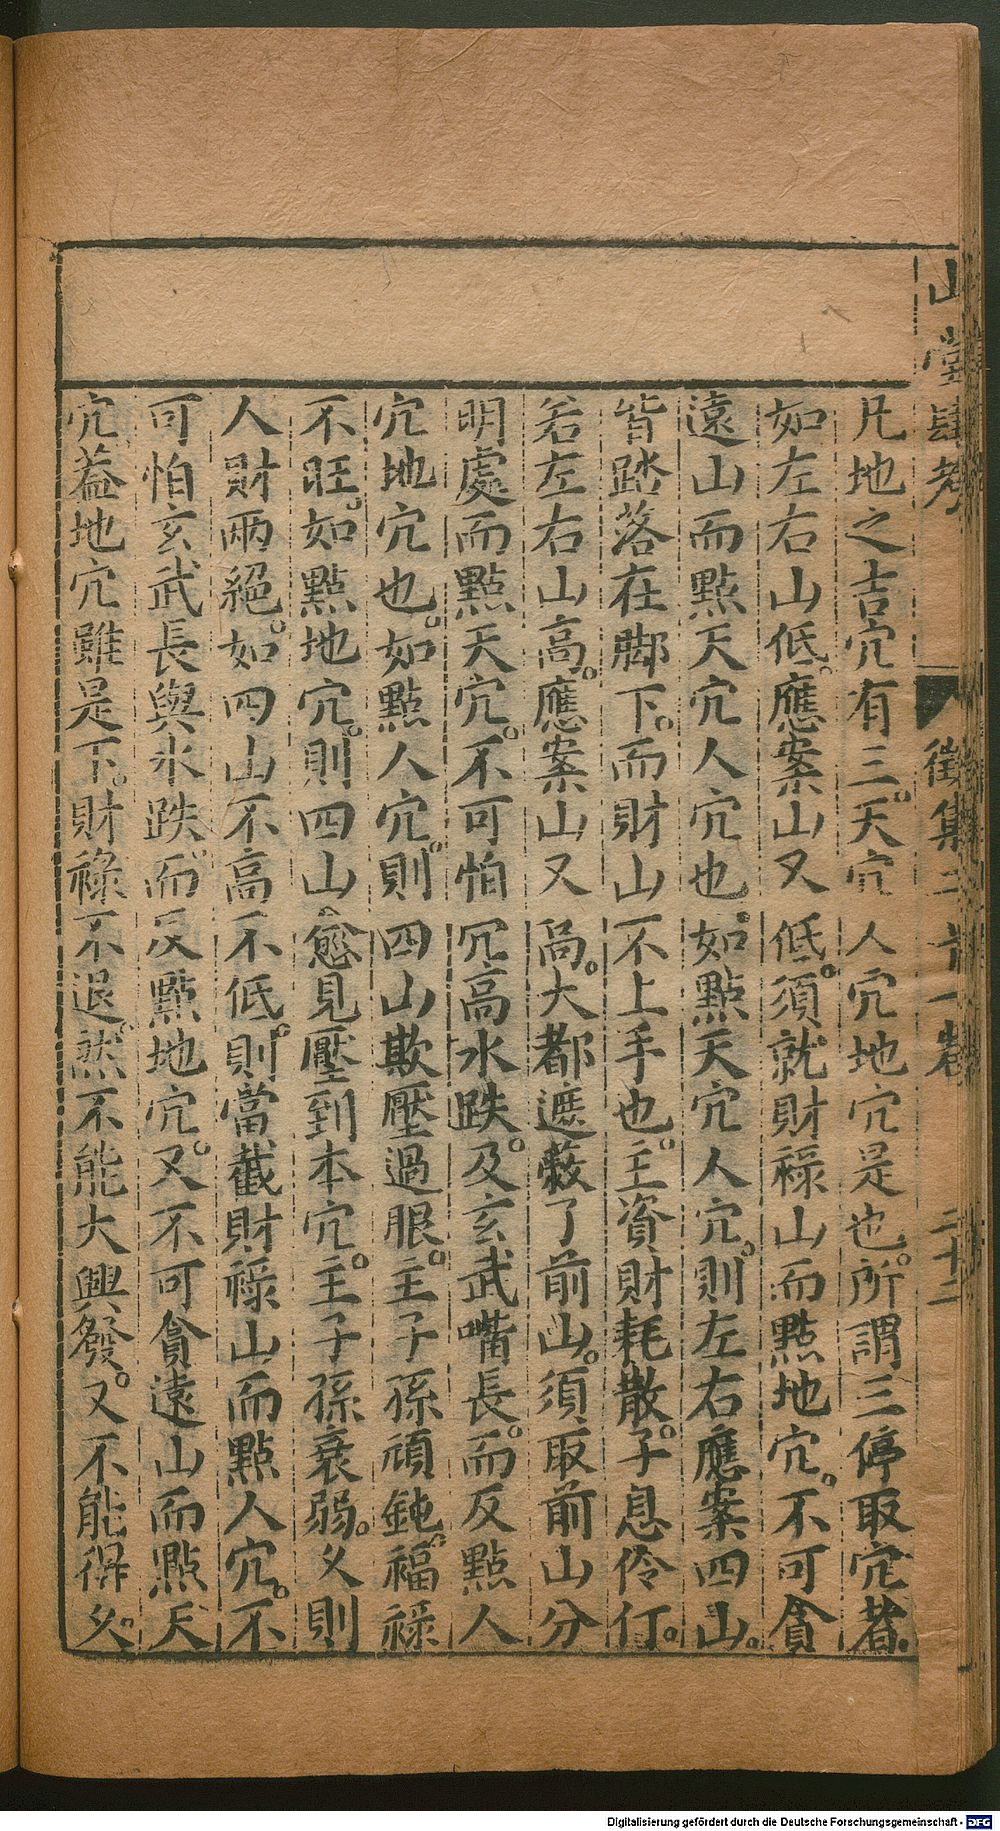 山堂肆考 徵集二十一卷 二十二
凡地之吉穴有三天穴人穴地穴是也所謂三停取穴者
如左右山低應案山又低須就財祿山而點地穴不可貪
遠山而點天穴人穴也如點天穴人穴則左右應案四山
皆踏落在脚下而財山不上手也主資財耗散子息伶仃
若左右山高應案山又高大都遮蔽了前山須取前山分
明處而點天穴不可怕穴高水跌及玄武嘴長而反點人
穴地穴也如點人穴則四山欺壓過眼主子孫頑鈍福祿
不旺如點地穴則四山愈見壓到本穴主子孫衰弱久則
人財兩絕如四山不高不低則當截財祿山而點人穴不
可怕玄武長與水跌而反點地穴又不可貪遠山而點天
穴葢地穴雖是下財祿不退然不能大興發又不能得久
Digitalisierung gefördert durch die Deutsche Forschungsgemeinschaft - DFG